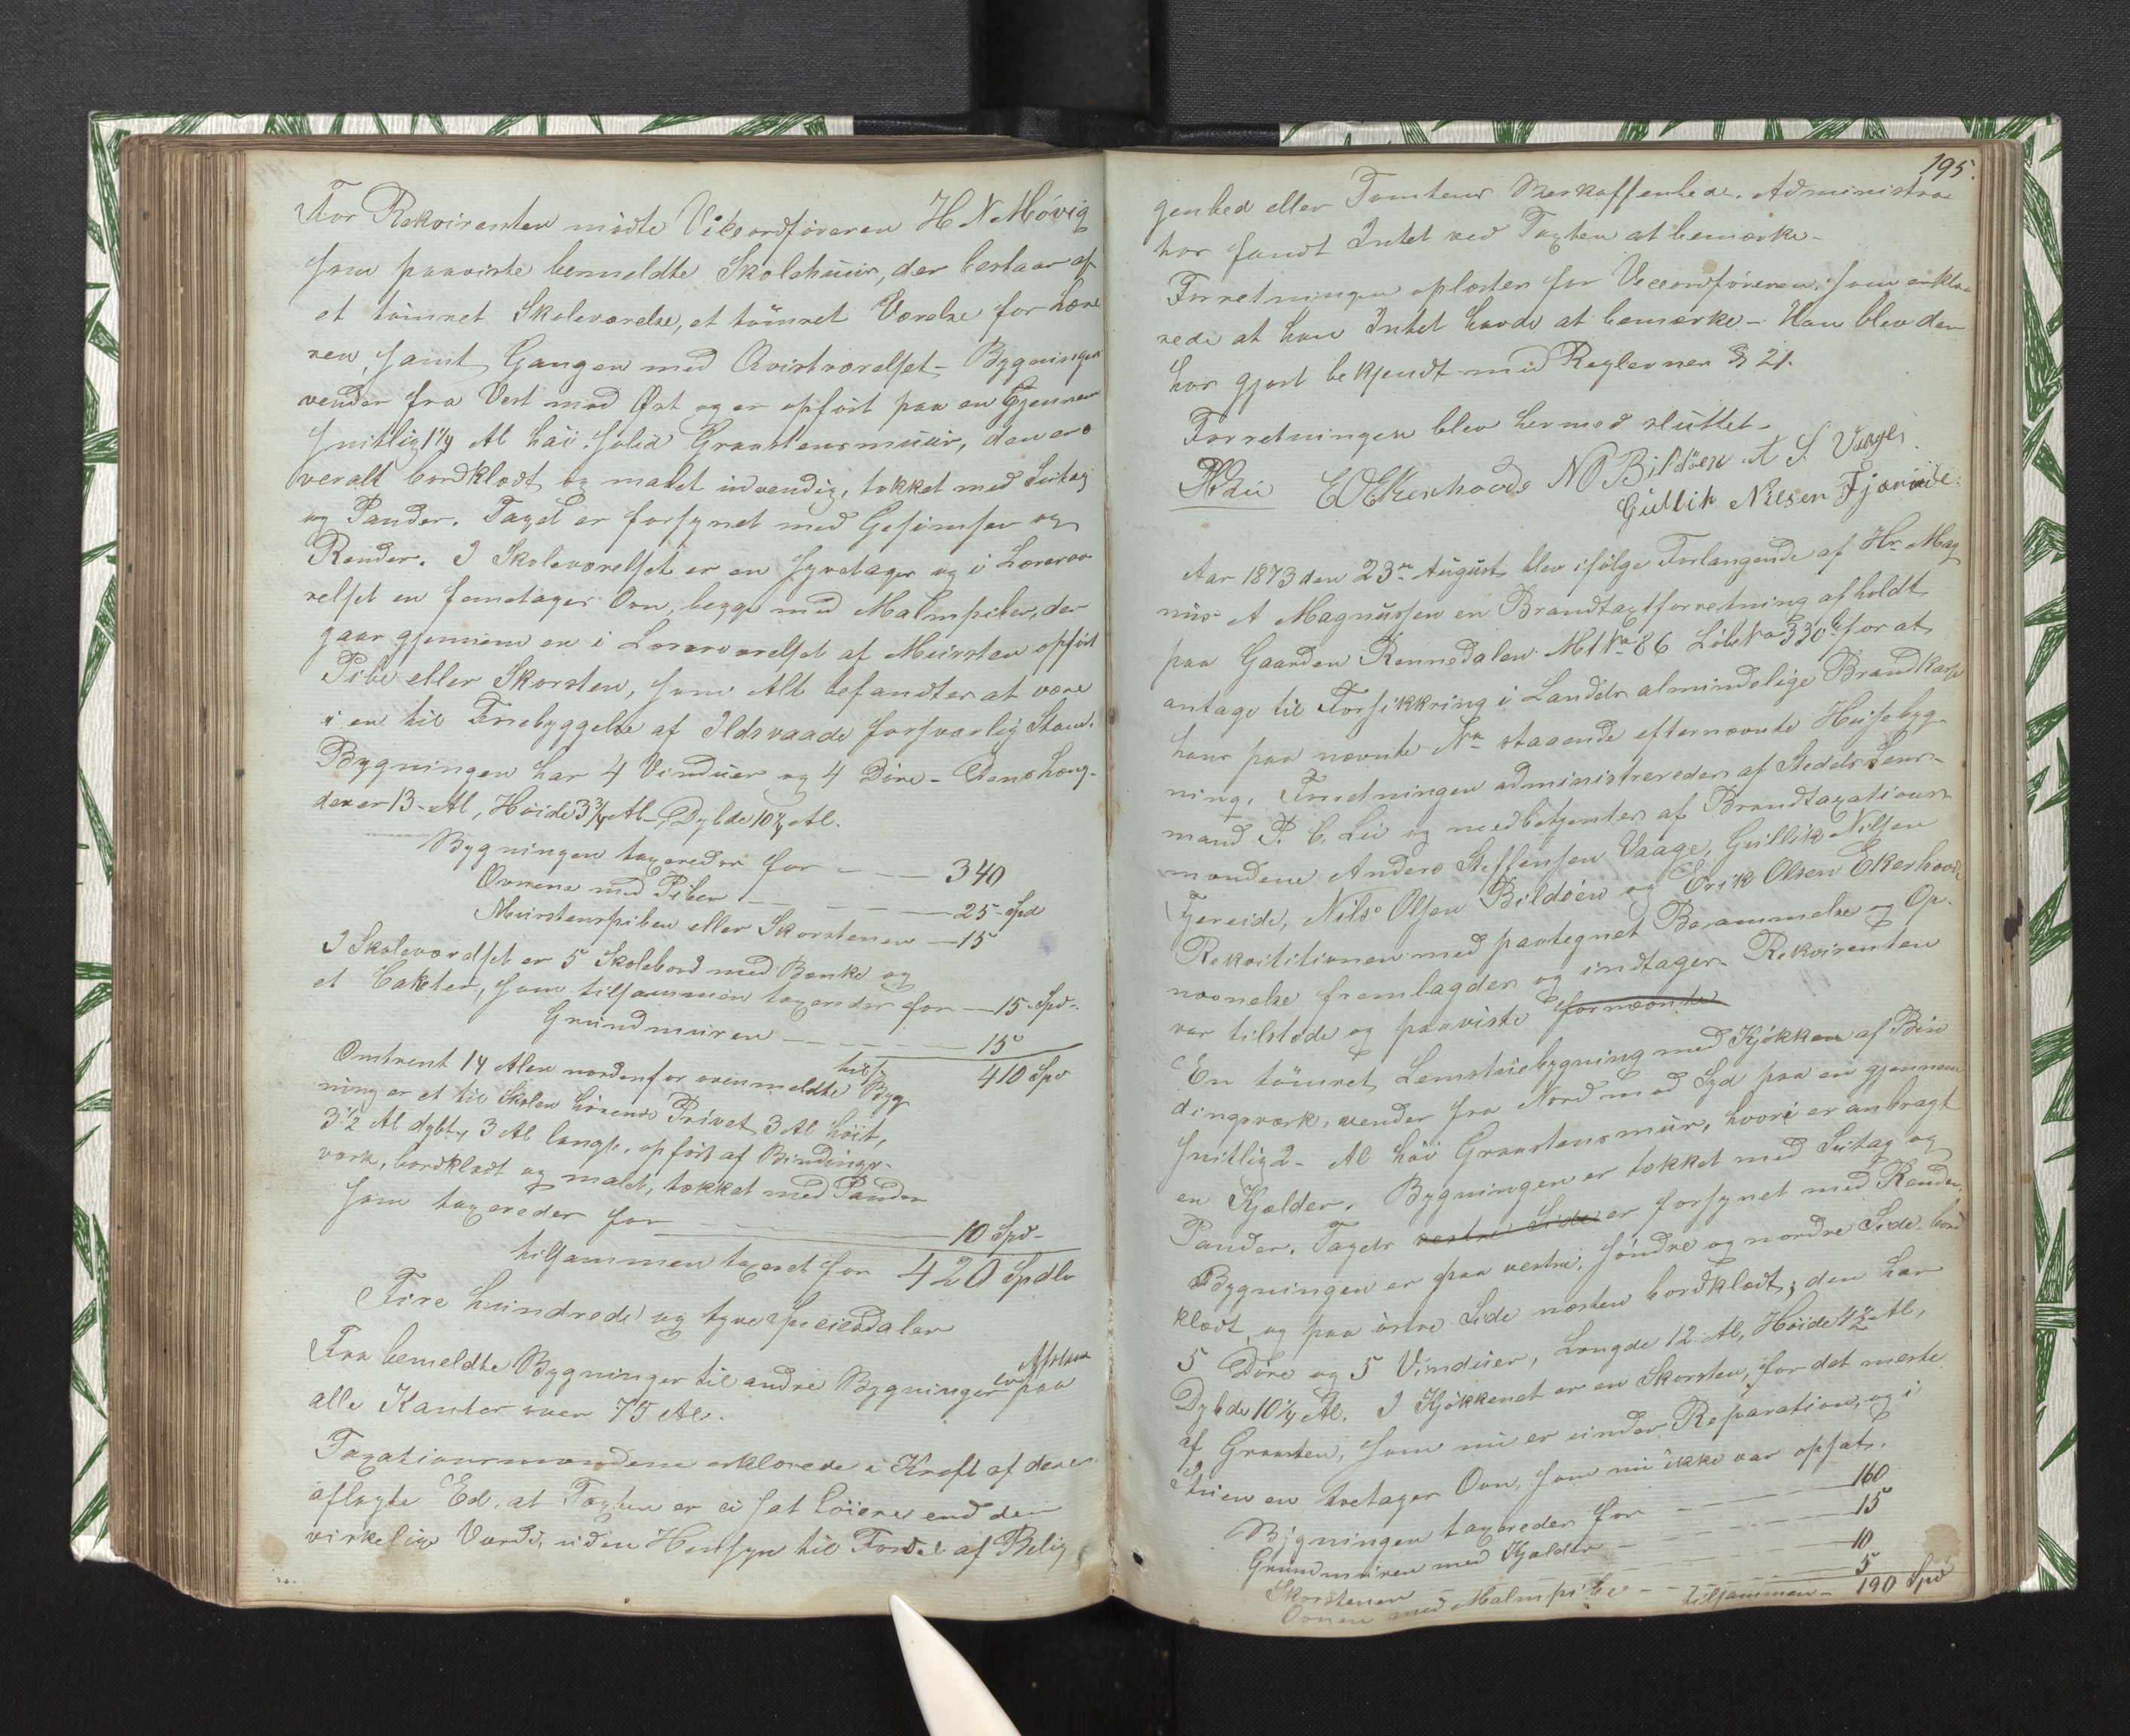 For Rekvirenten mödte Viceordföreren H N Mövig
som paaviste bemeldte Skolehuus, der bestaar af
et tömret Skoleværelse, et tömret Værelse for Lære
ren, samt Gangen med Qvistværelset - Bygningen
vender fra Vest mod Øst og er opfört paa en Gjennem
snitlig 1 1/4 Al höi solid Graastensmuur, den er o
veralt bordklædt og malet indvendig, tækket med Sutag
og Pander. Taget er forsynet med Gesimser og
Render. I Skoleværelset er en syvetager og i Lærervæ
relset en femetager Ovn, begge med Malmpiber, der
gaar gjennem en i Lærerværelset af Mursten opfört
Pibe eller Skorsten, som Alt befandtes at være
i en til Forebyggelse af Ildsvaade forsvarlig Stand.
Bygningen har 4 Vinduer og 4 Döre - Dens Læng-
de er 13 - Al, Höide 3 3/4 Al - Dybde 10 1/4 Al.
Bygningen taxeredes for - - - 340
Ovnene med Piber - - - - 25 - Spd
Murstenspiben eller Skorstenen - 15
I Skoleværelset er 5 Skolebord med Bænke og
et Catheter, som tilsammen taxeredes for - - 15 - Spd -
Grundmuren - - - - 15
tils 410 Spd
Omtrent 14 Alen nordenfor ovenmeldte Byg
ning er et til Skolen hörende Privet 3 Al höit,
3 1/2 Al dybt, 3 Al langt, opfört af Bindings-
værk, bordklædt og malet, tækket med Pander
som taxeredes for - - - - 10 Spd -
tilsammen taxeret for 420 Spdlr
Fire hundrede og tyve Speciedaler
Fra bemeldte Bygninger til andre Bygninger er Afstand paa
alle Kanter over 75 Al.
Taxationsmændene erklærede i Kraft af deres
aflagte Ed, at Taxten er ei sat höiere end den
virkelige Værdi, uden Hensyn til Fordel af Belig
195.
genhed eller Tomtens Beskaffenhed. Administra
tor fandt Intet ved Taxten at bemærke -
Forretningen oplæstes for Viceordföreren, som erklæ
rede at han Intet havde at bemærke - Han blev der
hos gjort bekjendt med Reglernes § 21.
Forretningen blev hermed sluttet -
E O Ekerhovde N O Bildöen A S Vaage
Gullik Nilsen Fjæreide.
Aar 1873 den 23de August blev ifölge Forlangende af Hr Mag
nus A Magnussen en Brandtaxtforretning afholdt
paa Gaarden Rennedalen M No 86 Löbe No 330 b for at
antage til Forsikkring i Landets almindelige Brandkasse
hans paa nævnte No staaende efternævnte Huusebyg-
ning. Forretningen administreredes af Stedets Lens-
mand P. C. Lie og medbetjentes af Brandtaxations-
mændene Anders Steffensen Vaage, Gullik Nilsen
Fjereide, Nils Olsen Bildöen og Erik Olsen Ekerhovde
Rekvisitionen med paategnet Berammelse og Op-
nævnelse fremlagdes og indtages - Rekvirenten
var tilstede og paaviste fornævnte
En tömret Lemstuebygning med Kjökken af Bin
dingsværk, vender fra Nord mod Syd paa en gjennem
snitlig 2 - Al höi Graastensmuur, hvori er anbragt
en Kjelder. Bygningen er tækket med Sutag og
Pander. Tagets vestre Side er forsynet med Render.
Bygningen er paa vestre, söndre og nordre Side bord
klædt og paa östre Side næsten bordklædt; den har
5 Döre og 5 Vinduer, Længde 12 Al, Höide 4 1/2 Al,
Dybde 10 1/4 Al. I Kjökkenet er en Skorsten, for det meste
af Graasten, som nu er under Reparation, og i
Stuen en tretager Ovn, som nu ikke var opsat.
Bygningen taxeredes for - - - - 160
Grundmuren med Kjelder - - - - 15
Skorstenen - - - - 10
Ovnen med Malmpibe - - - - 5
tilsammen - 190 Spd